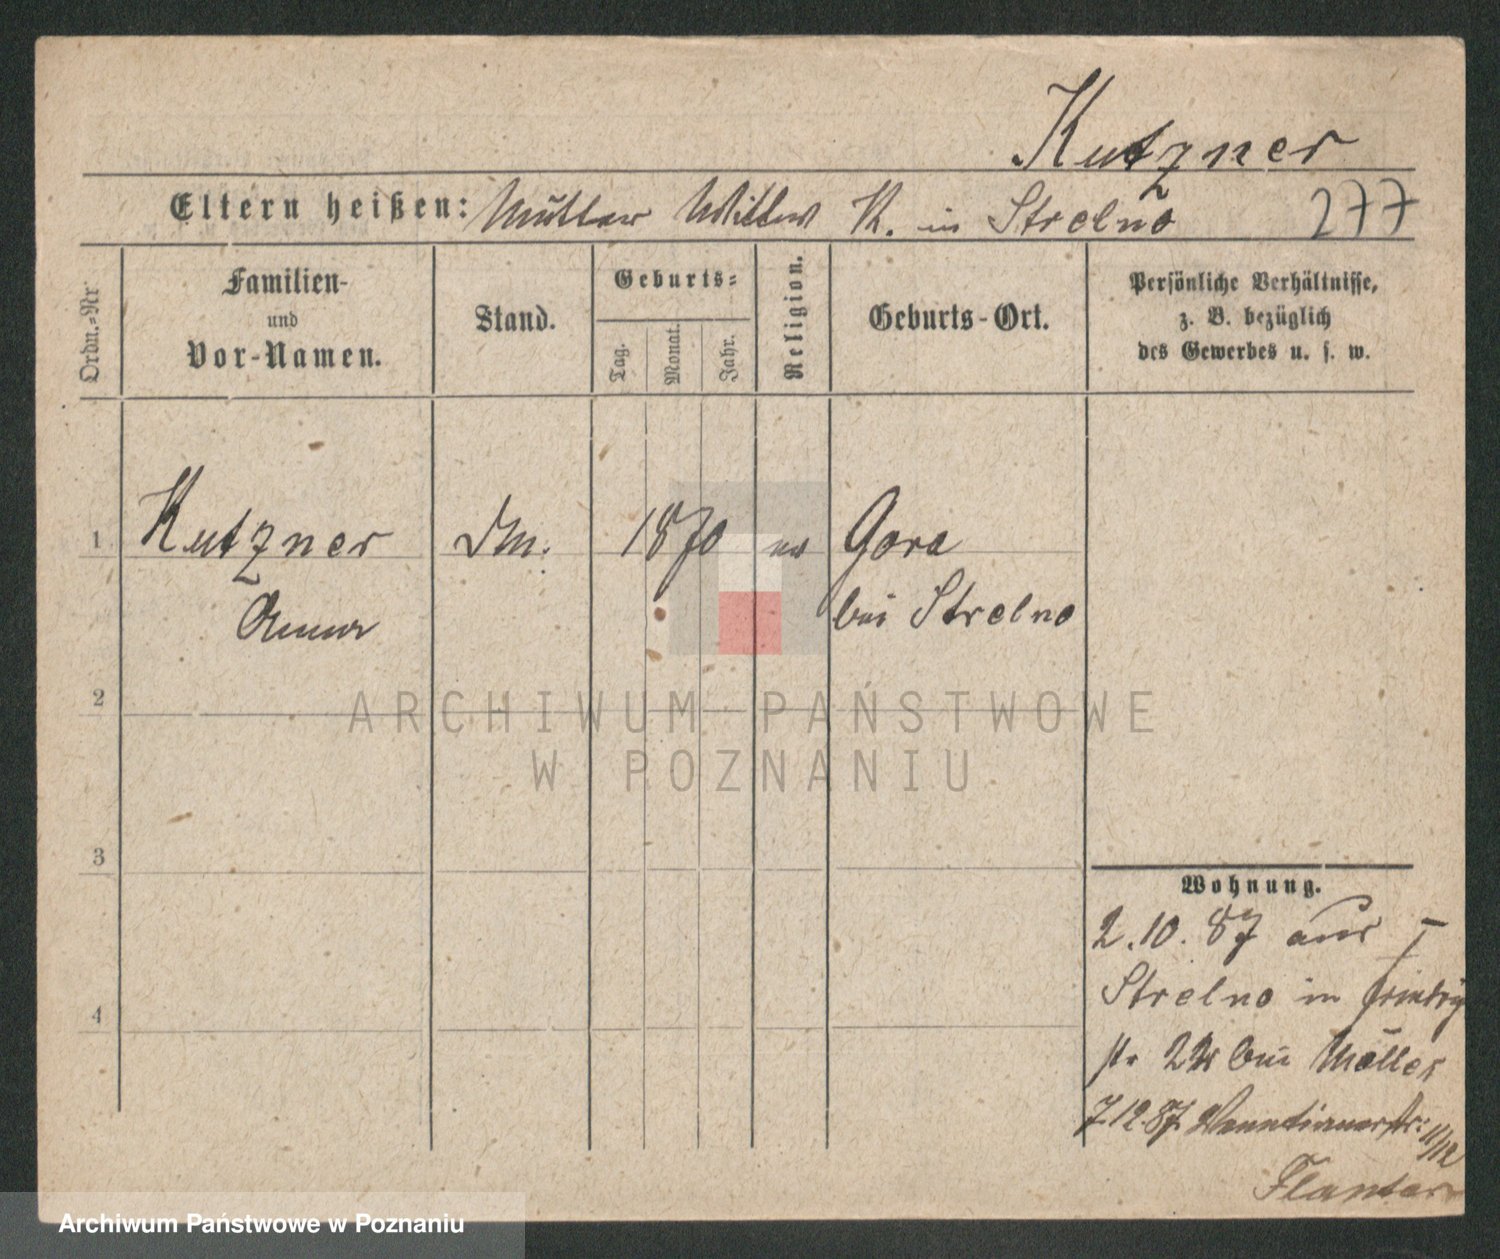 Kutzner
Eltern heißen: Mutter Wittwe K. in Strelno 277
Ordn.-Nr
Familien-
und
Vor-Namen.
Stand.
Geburts-
Tag.
Monat.
Jahr.
Religion.
Geburts-Ort.
Persönliche Verhältnisse,
z. B. bezüglich
des Gewerbes u. s. w.
1 Kutzner 1870 ev Gora
Anna bei Strelno
2
3
4
Wohnung.
2.10.87 aus
Strelno in
str 22 bei Möller
7.12.87 Venetianerstr: 11/12
ARCHIWUM PAŃSTWOWE
W POZNANIU
Archiwum Państwowe w Poznaniu